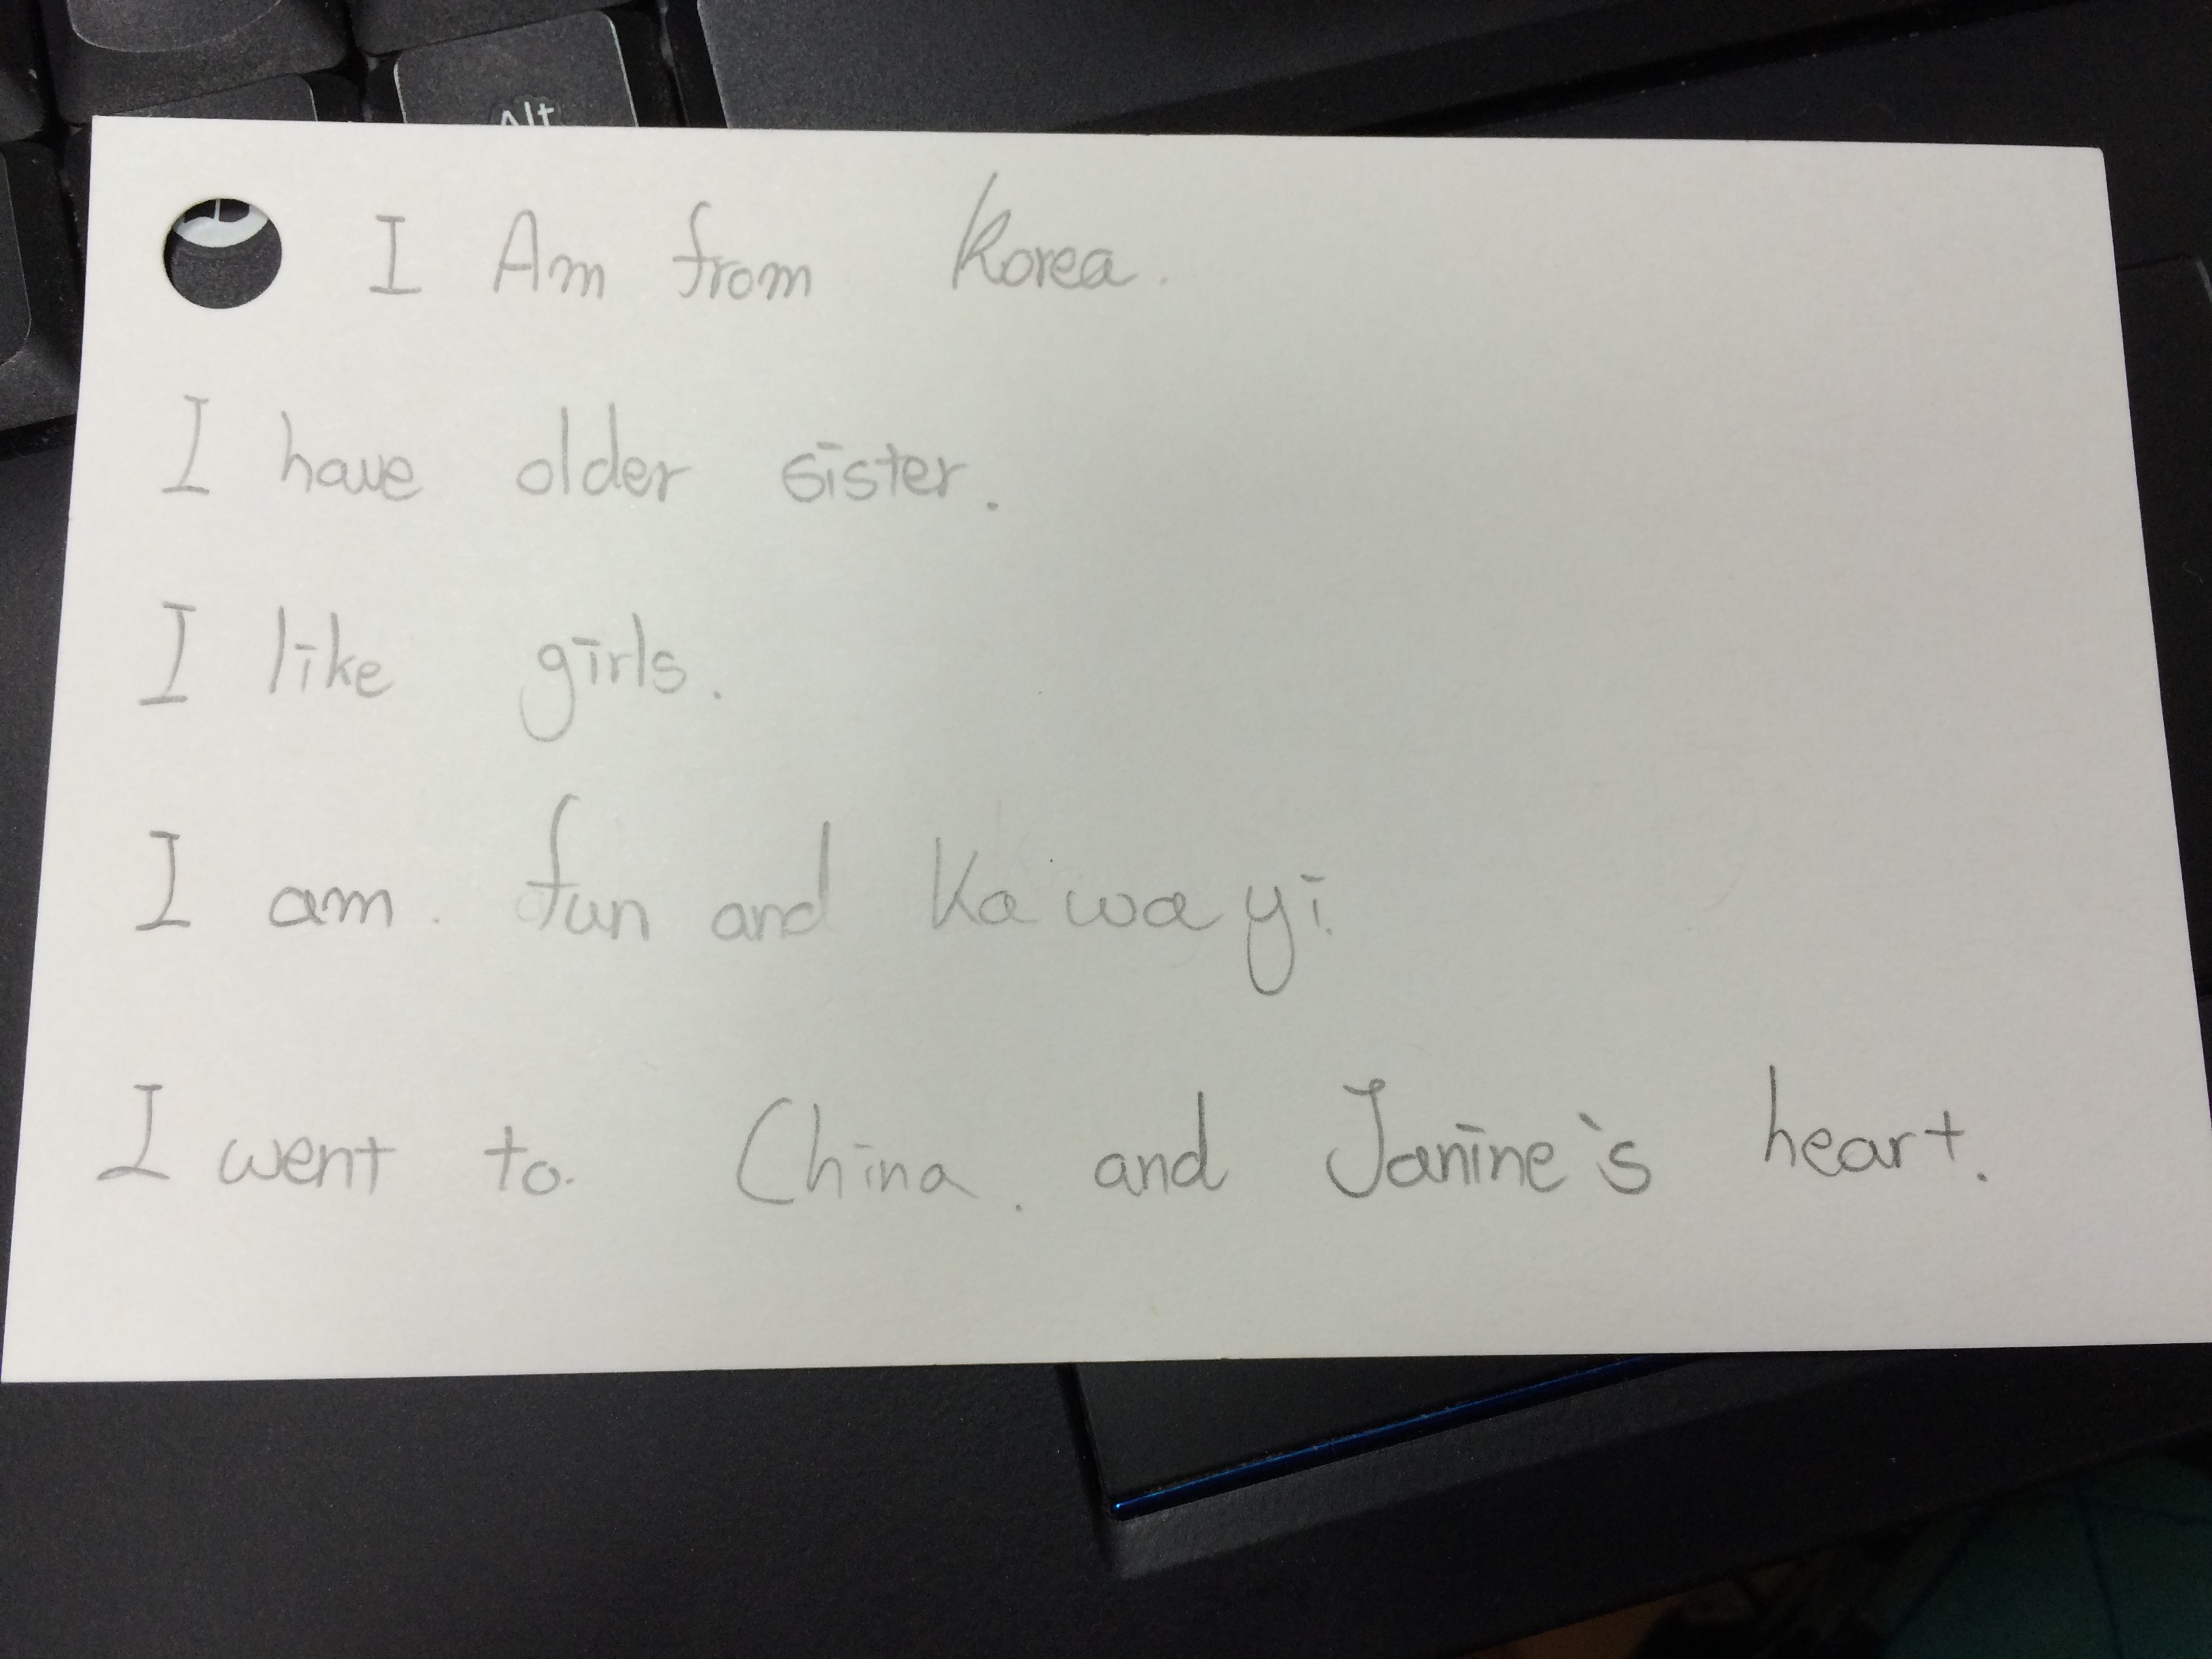 Alt
I Am from Korea.
I have older sister.
I like girls.
I am. fun and Kawayi.
I went to. China. and Janine's heart.